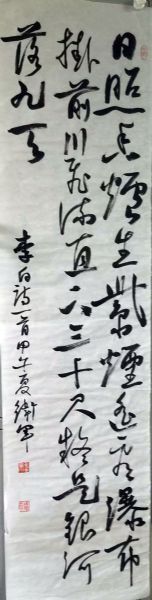 日照香爐生紫煙遥看瀑布
掛前川飛流直下三千尺疑是銀河
落九天
李白詩一首甲午夏衛軍